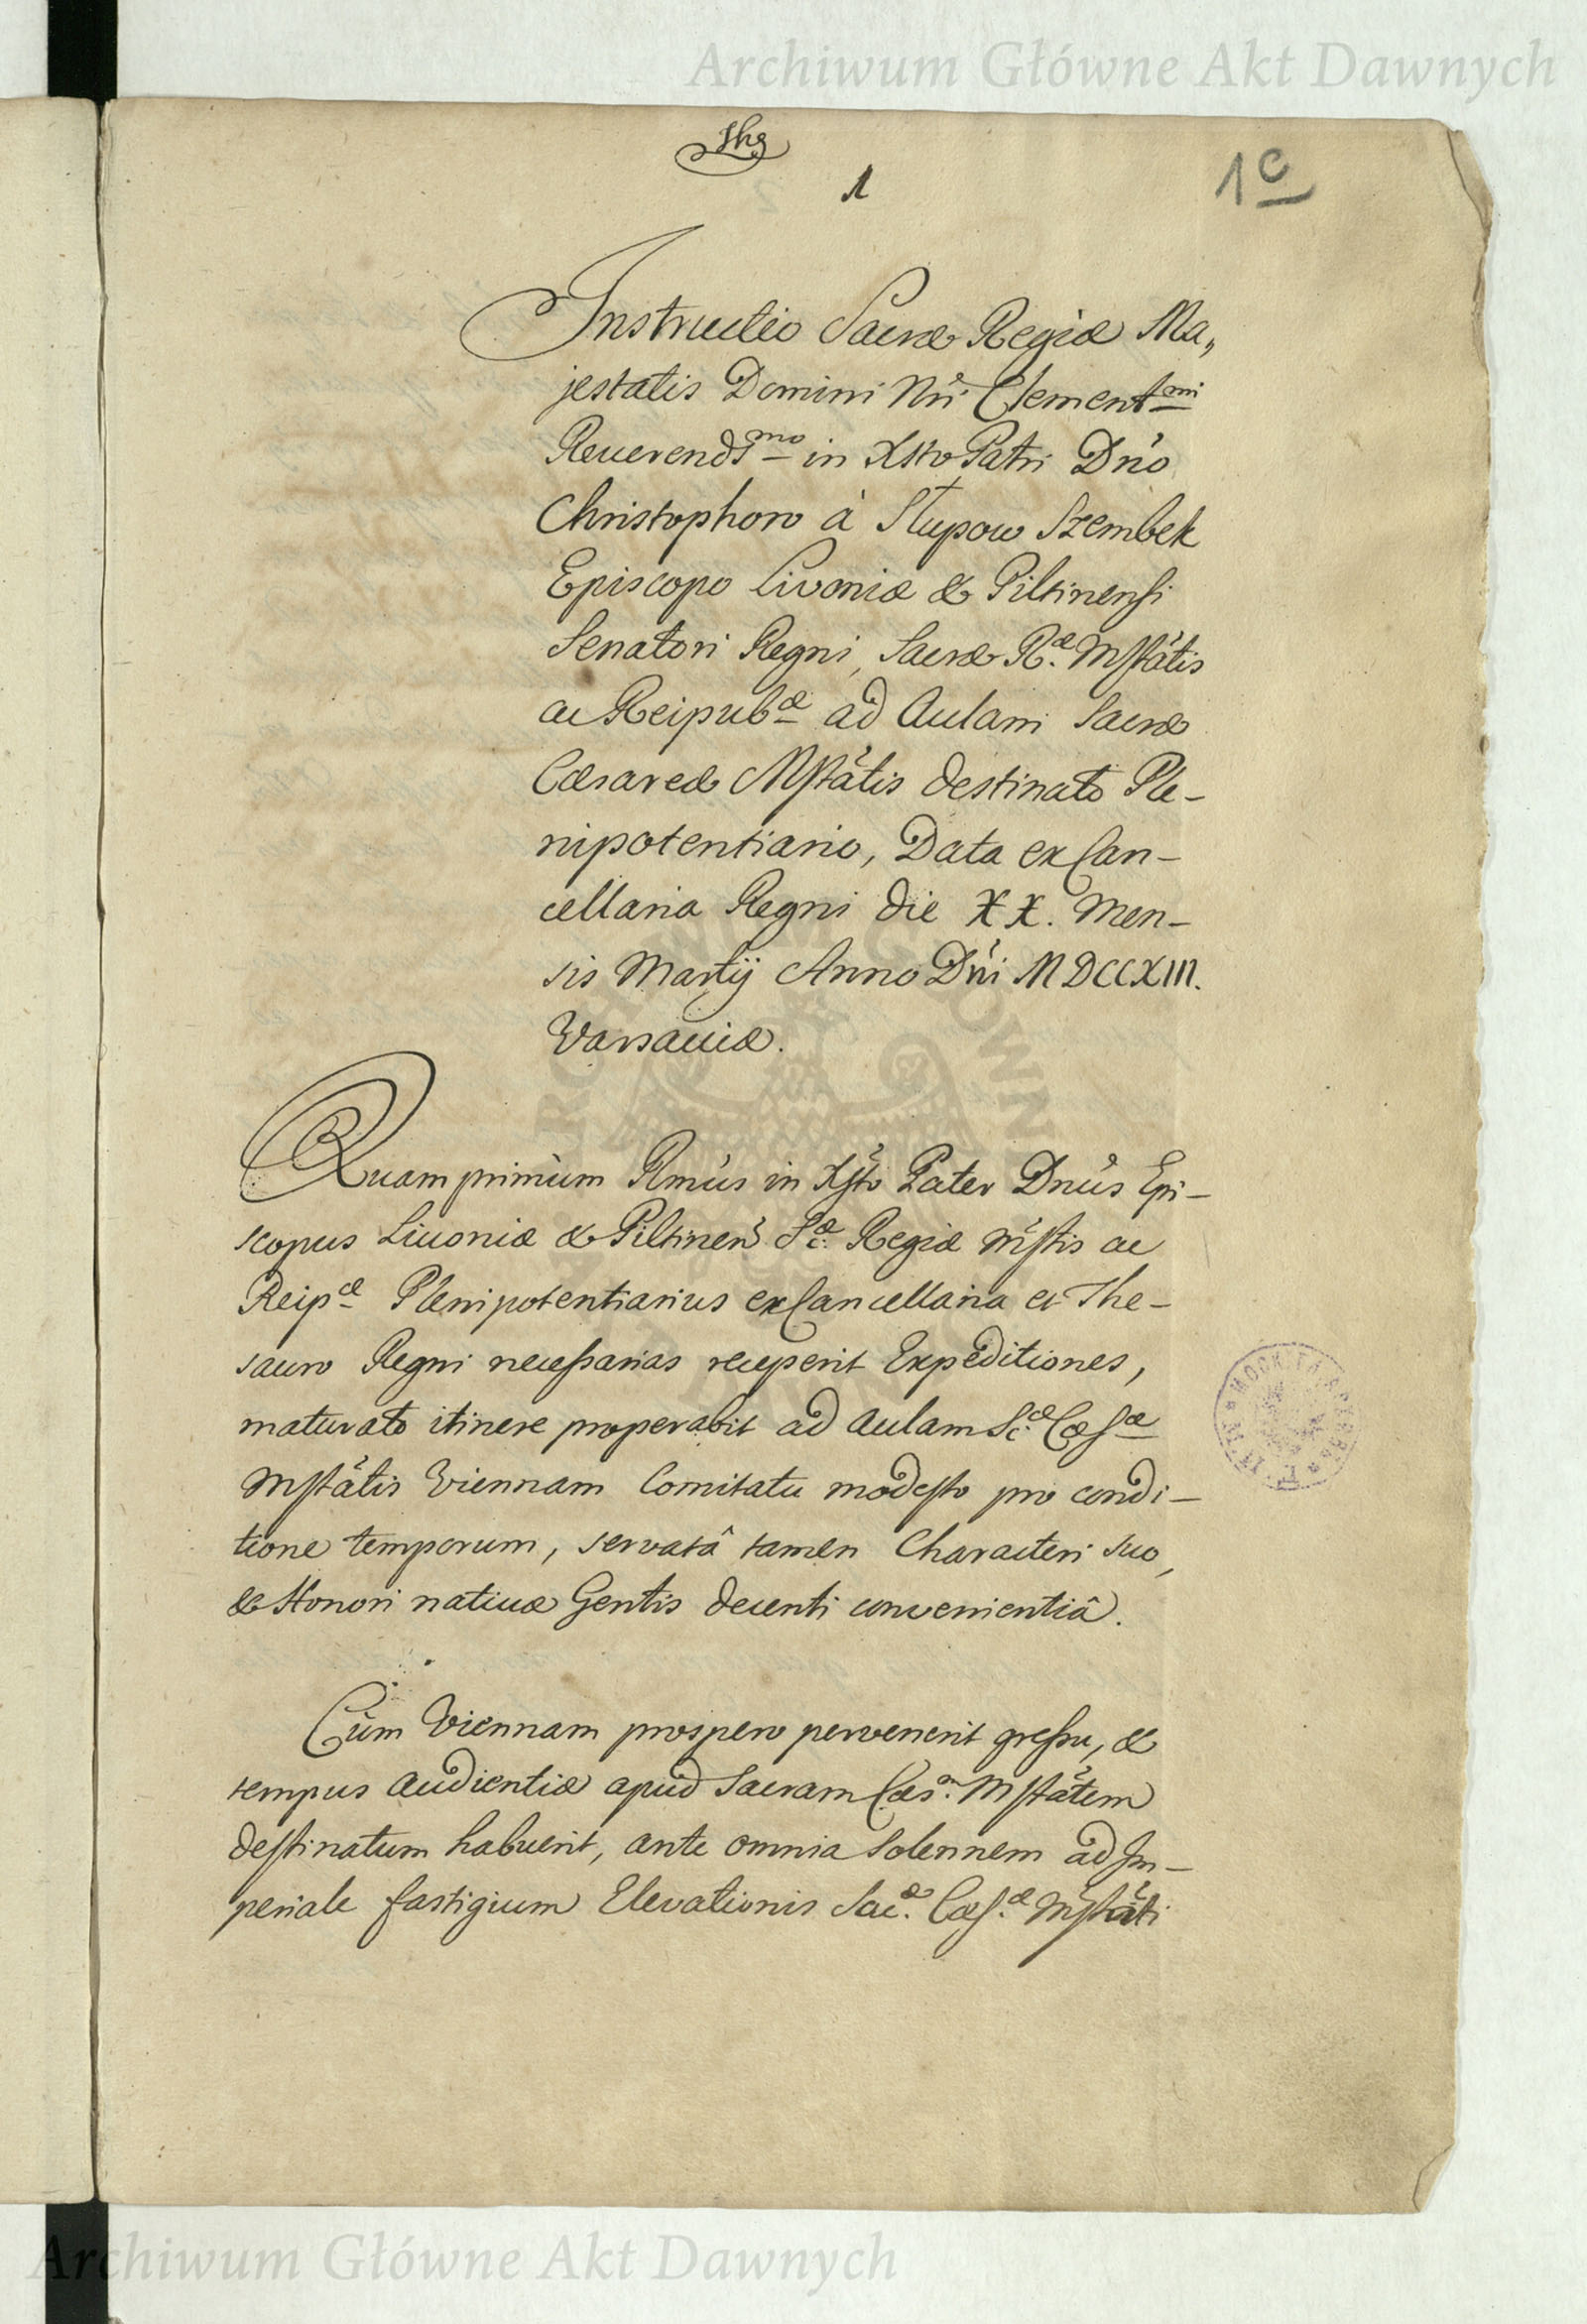 Archiwum Główne Akt Dawnych
Ihs
1
1c
Instructio Sacræ Regiæ Ma„
jestatis Domini Nri Clementmi
Reuerendsmo in Xsto Patri Dno
Christophoro à Słupow Szembek
Episcopo Livoniæ & Piltinensi
Senatori Regni, Sacræ Ræ. Mstatis
ac Reipubæ ad Aulam Sacræ
Cæsareæ Mstatis destinato Ple-
nipotentiario, Data ex Can-
cellaria Regni die XX. Men-
sis Martij Anno Dni MDCCXIII.
Varsauiæ.
Quamprimùm Rmus in Xsto Pater Dnus Epi-
scopus Liuoniæ & Piltinen Scæ: Regiæ Mstis ac
Reipæ Plenipotentiarius ex Cancellaria et The-
sauro Regni necessarias receperit Expeditiones,
maturato itinere properabit ad Aulam Scæ: Cæsæ
Mstatis Viennam Comitatu modesto pro condi-
tione temporum, servatâ tamen Characteri suo,
& Honori natiuæ Gentis decenti convenientiâ.
Cùm Viennam prospero pervenerit gressu, &
tempus Audientiæ apud Sacram Cæsm. Mstatem
destinatum habuerit, ante omnia solennem ad Im-
periale fastigium Elevationis Sacæ. Cæsæ. Mstati
Archiwum Główne Akt Dawnych